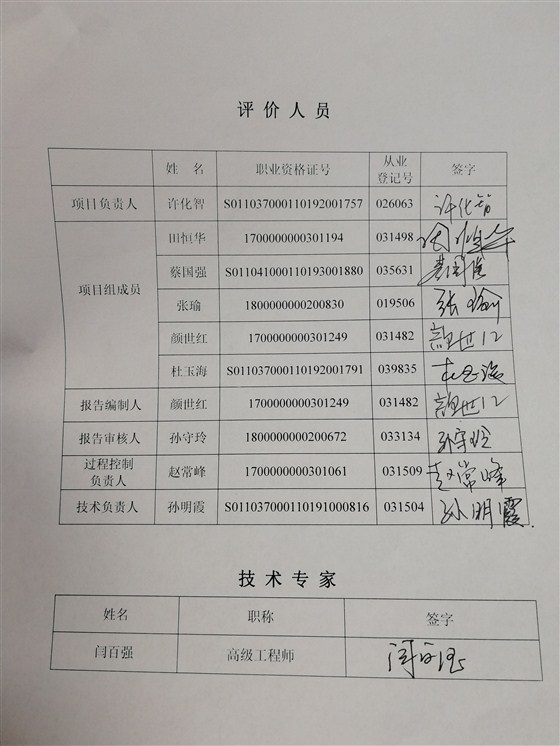 评 价 人 员
姓 名 职业资格证号 从业登记号 签字
项目负责人 许化智 S011037000110192001757 026063 许化智
项目组成员 田恒华 1700000000301194 031498 田恒华
蔡国强 S011041000110193001880 035631 蔡国强
张瑜 1800000000200830 019506 张瑜
颜世红 1700000000301249 031482 颜世红
杜玉海 S011037000110192001791 039835 杜玉海
报告编制人 颜世红 1700000000301249 031482 颜世红
报告审核人 孙守玲 1800000000200672 033134 孙守玲
过程控制负责人 赵常峰 1700000000301061 031509 赵常峰
技术负责人 孙明霞 S011037000110191000816 031504 孙明霞
技 术 专 家
姓名 职称 签字
闫百强 高级工程师 闫百强